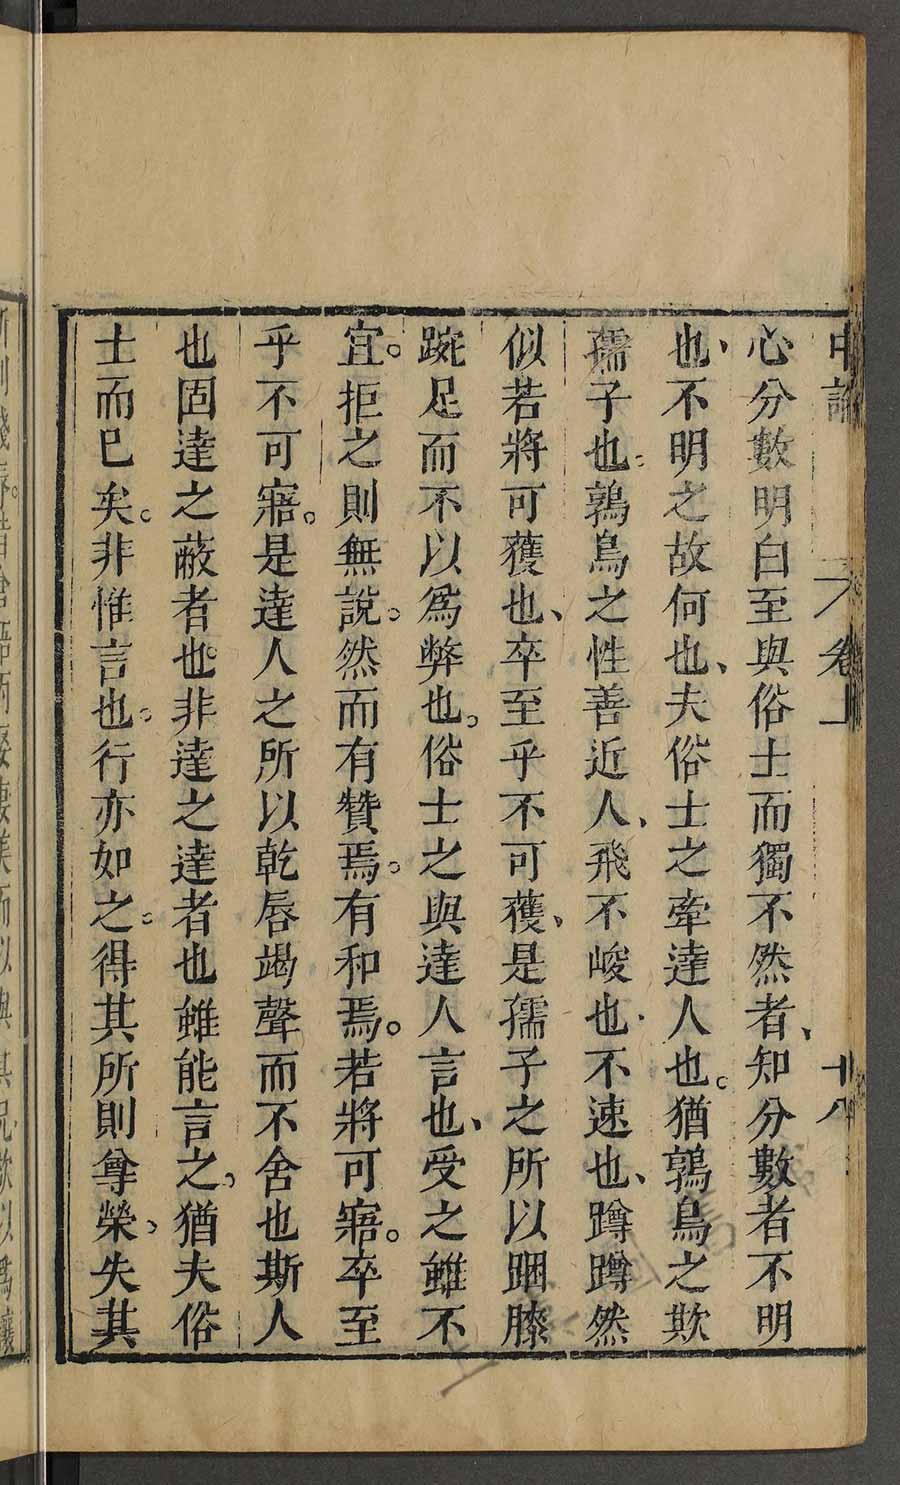 中論 卷上 十八
心分數明白至與俗士而獨不然者、知分數者不明
也、不明之故何也、夫俗士之牽達人也。猶鶉鳥之欺
孺子也。鶉鳥之性善近人、飛不峻也、不速也、蹲蹲然
似若將可獲也、卒至乎不可獲、是孺子之所以䠒膝
踠足而不以爲弊也。俗士之與達人言也、受之雖不
宜。拒之則無說。然而有贊焉。有和焉。若將可寤。卒至
乎不可寤。是達人之所以乾唇竭聲而不舍也斯人
也固達之蔽者也非達之達者也雖能言之。猶夫俗
士而已矣。非惟言也。行亦如之。得其所則尊榮、失其